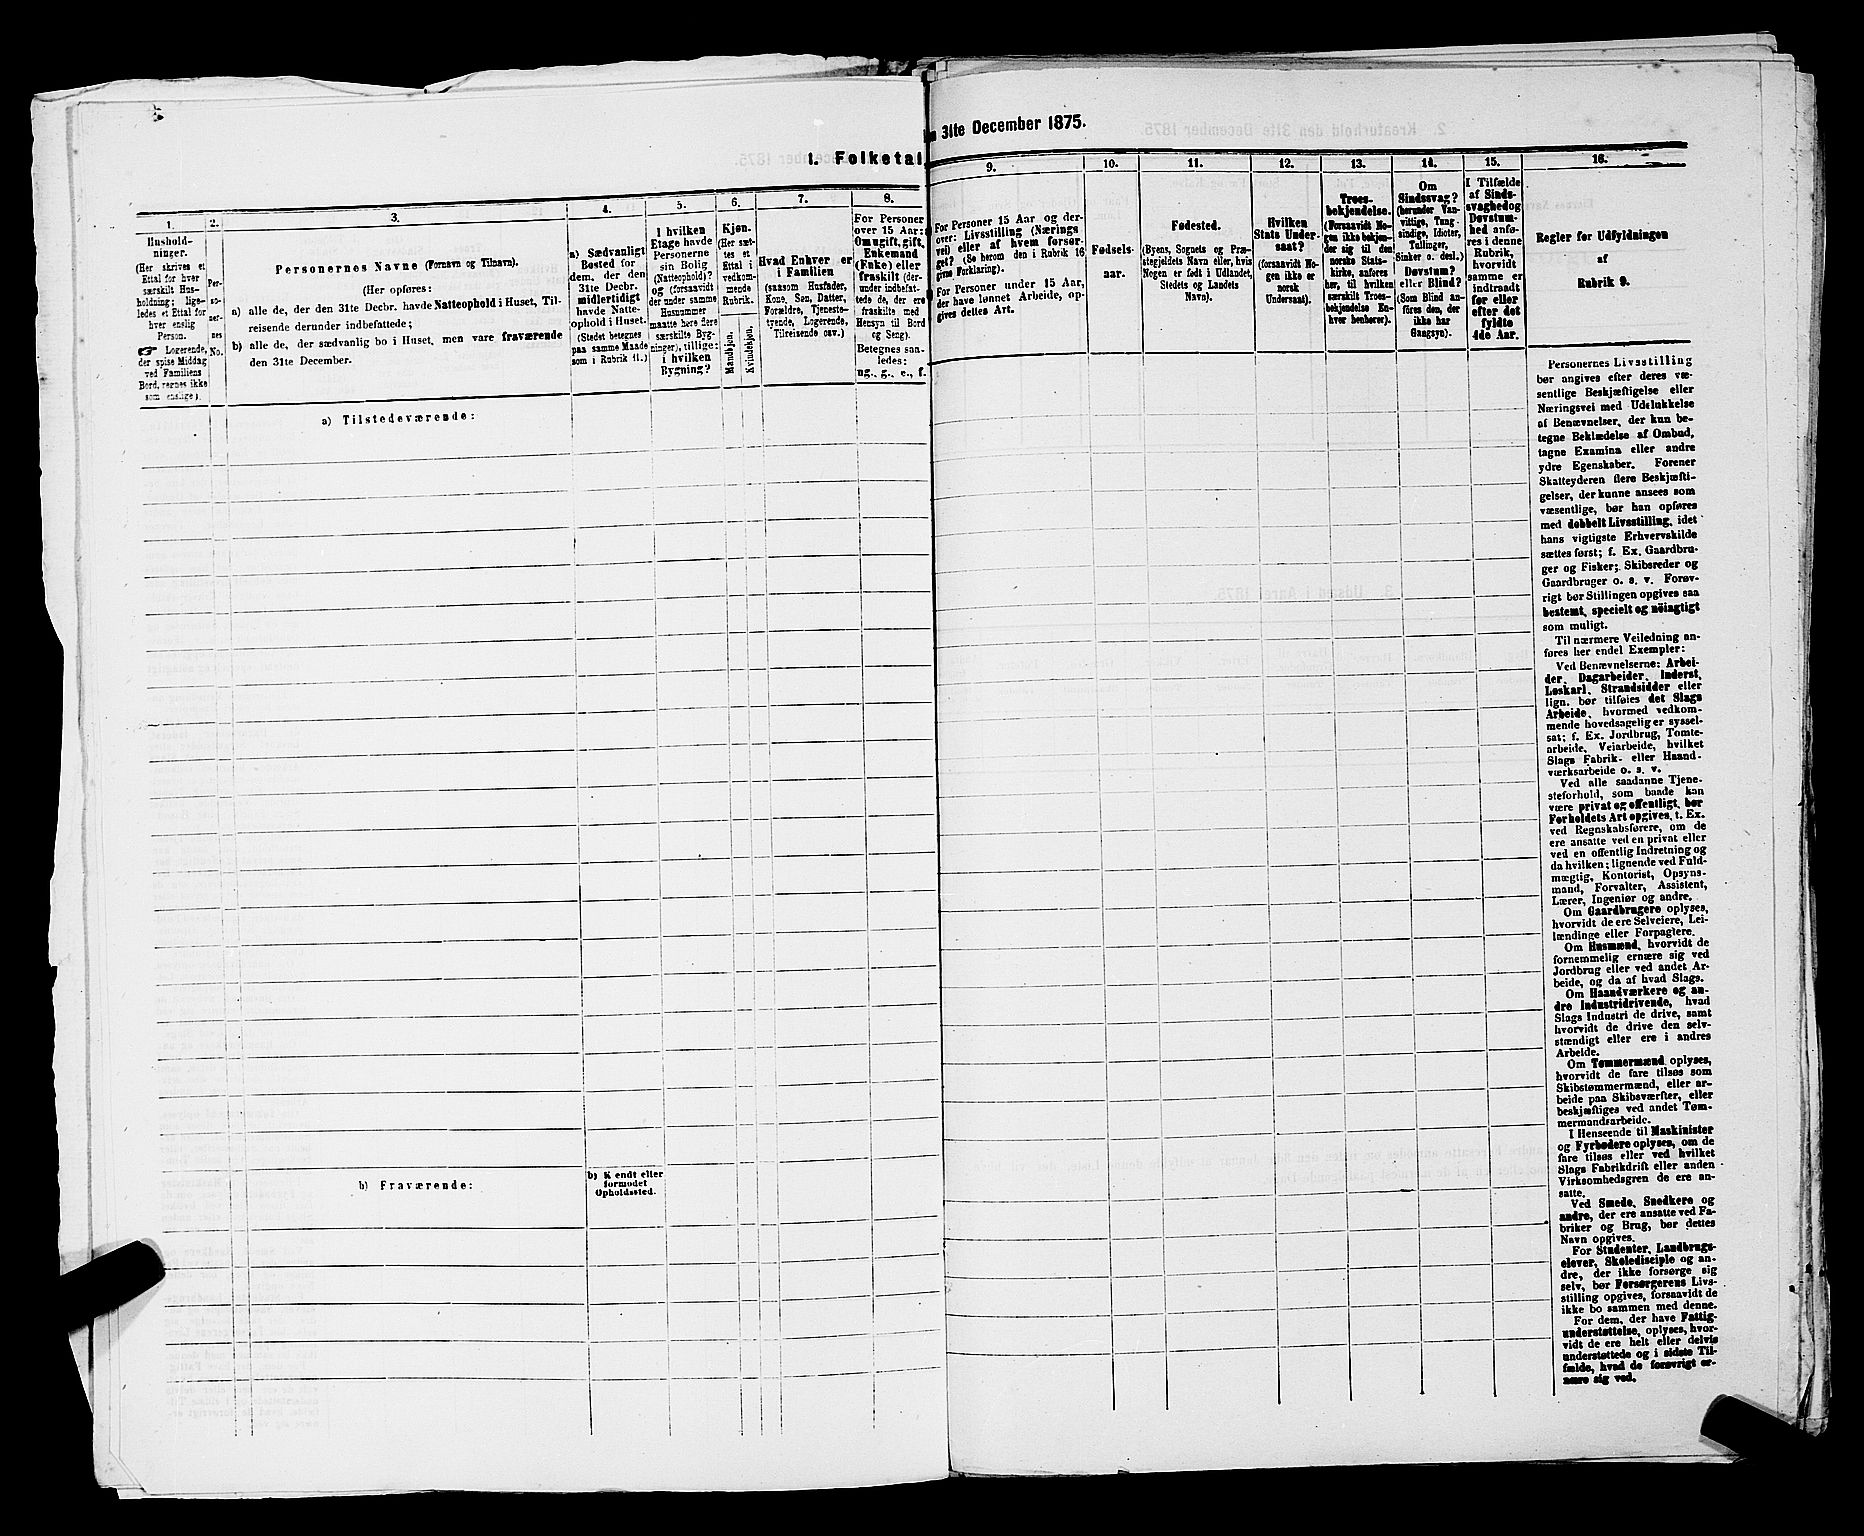 1. Folketal
1.
Hushold-
ninger.
(Her skrives et
Ettal for hver
særskilt Hus-
holdning; lige-
ledes et Ettal for
hver enslig
Person.
☞ Logerende,
der spise Middag
ved Familiens
Bord, regnes ikke
som enslige).
2.
Per-
so-
ner-
nes
No.
3.
Personernes Navne (Fornavn og Tilnavn).
(Her opføres:
a) alle de, der den 31te Decbr. havde Natteophold i Huset, Til-
reisende derunder indbefattede;
b) alle de, der sædvanlig bo i Huset, men vare fraværende
den 31te December.
4.
a) Sædvanligt
Bosted for
dem, der den
31te Decbr.
midlertidigt
havde Natte-
ophold i Huset.
(Stedet betegnes
paa samme Maade
som i Rubrik 11.)
5.
I hvilken
Etage havde
Personerne
sin Bolig
(Natteophold)?
og (forsaavidt
der under samme
Husnummer
maatte høre flere
særskilte Byg-
ninger), tillige:
i hvilken
Bygning?
6.
Kjøn.
(Her sæt-
tes et
Ettal i
vedkom-
mende
Rubrik.
Mandkjøn.
Kvindekjøn.
7.
Hvad Enhver er
i Familien
(saasom Husfader,
Kone, Søn, Datter,
Forældre, Tjeneste-
tyende, Logerende,
Tilreisende osv.)
8.
For Personer
over 15 Aar:
Om ugift, gift,
Enkemand
(Enke) eller
fraskilt (der-
under indbefat-
tede de, der ere
fraskilte med
Hensyn til Bord
og Seng).
Betegnes saa-
ledes:
ug., g., e., f.
a) Tilstedeværende:
b) Fraværende:
b) Kjendt eller
formodet
Opholdssted.
31te December 1875.
9.
For Personer 15 Aar og der-
over: Livsstilling (Nærings
vei) eller af hvem forsør-
get? (Se herom den i Rubrik 16
givne Forklaring).
For Personer under 15 Aar,
der have lønnet Arbeide, op-
gives dettes Art.
10.
Fødsels-
aar.
11.
Fødested.
(Byens, Sognets og Præ-
stegjeldets Navn eller, hvis
Nogen er født i Udlandet,
Stedets og Landets
Navn).
12.
Hvilken
Stats Under-
saat?
(forsaavidt No-
gen ikke er
norsk
Undersaat).
13.
Troes-
bekjendelse.
(Forsaavidt No-
gen ikke bekjen-
der sig til den
norske Stats-
kirke, anføres
her, til hvilken
særskilt Troes-
bekjendelse En-
hver henhører).
14.
Om
Sindssvag?
(herunder Van-
vittige, Tung-
sindige, Idioter,
Tullinger,
Sinker o. desl.)
Døvstum?
eller Blind?
(Som Blind an-
føres den, der
ikke har
Gangsyn).
15.
I Tilfælde
af Sinds-
svaghed og
Døvstum-
hed anfø-
res i denne
Rubrik,
hvorvidt
samme er
indtraadt
før eller
efter det
fyldte
4de Aar.
16.
Regler for Udfyldningen
af
Rubrik 9.
Personernes Livsstilling
bør angives efter deres væ-
sentlige Beskjæftigelse eller
Næringsvei med Udelukkelse
af Benævnelser, der kun be-
tegne Beklædelse af Ombud,
tagne Examina eller andre
ydre Egenskaber. Forener
Skatteyderen flere Beskjæfti-
gelser, der kunne ansees som
væsentlige, bør han opføres
med dobbelt Livsstilling, idet
hans vigtigste Erhvervskilde
sættes først; f. Ex. Gaardbru-
ger og Fisker; Skibsreder og
Gaardbruger o. s. v. Forøv-
rigt bør Stillingen opgives saa
bestemt, specielt og nöiagtigt
som muligt.
Til nærmere Veiledning an-
føres her endel Exempler:
Ved Benævnelserne: Arbei-
der, Dagarbeider, Inderst,
Løskarl, Strandsidder eller
lign. bør tilføies det Slags
Arbeide, hvormed vedkom-
mende hovedsagelig er syssel-
sat; f. Ex. Jordbrug, Tomte-
arbeide, Veiarbeide, hvilket
Slags Fabrik- eller Haand-
værksarbeide o. s. v.
Ved alle saadanne Tjene-
steforhold, som baade kan
være privat og offentligt, bør
Forholdets Art opgives, f. Ex.
ved Regnskabsførere, om de
ere ansatte ved en privat eller
ved en offentlig Indretning og
da hvilken; lignende ved Fuld-
mægtig, Kontorist, Opsyns-
mand, Forvalter, Assistent,
Lærer, Ingeniør og andre.
Om Gaardbrugere oplyses,
hvorvidt de ere Selveiere, Lei-
lændinge eller Forpagtere.
Om Husmænd, hvorvidt de
fornemmelig ernære sig ved
Jordbrug eller ved andet Ar-
beide, og da af hvad Slags.
Om Haandværkere og an-
dre Industridrivende, hvad
Slags Industri de drive, samt
hvorvidt de drive den selv-
stændigt eller ere i andres
Arbeide.
Om Tømmermænd oplyses,
hvorvidt de fare tilsøs som
Skibstømmermænd, eller ar-
beide paa Skibsværfter, eller
beskjæftiges ved andet Tøm-
mermandsarbeide.
I Henseende til Maskinister
og Fyrbødere oplyses, om de
fare tilsøs eller ved hvilket
Slags Fabrikdrift eller anden
Virksomhedsgren de ere an-
satte.
Ved Smede, Snedkere og
andre, der ere ansatte ved Fa-
briker og Brug, bør dettes
Navn opgives.
For Studenter, Landbrugs-
elever, Skoledisciple og an-
dre, der ikke forsørge sig
selv, bør Forsørgerens Livs-
stilling opgives, forsaavidt de
ikke bo sammen med denne.
For dem, der have Fattig-
understøttelse, oplyses, hvor-
vidt de ere helt eller delvis
understøttede og i sidste Til-
fælde, hvad de forøvrigt er-
nære sig ved.